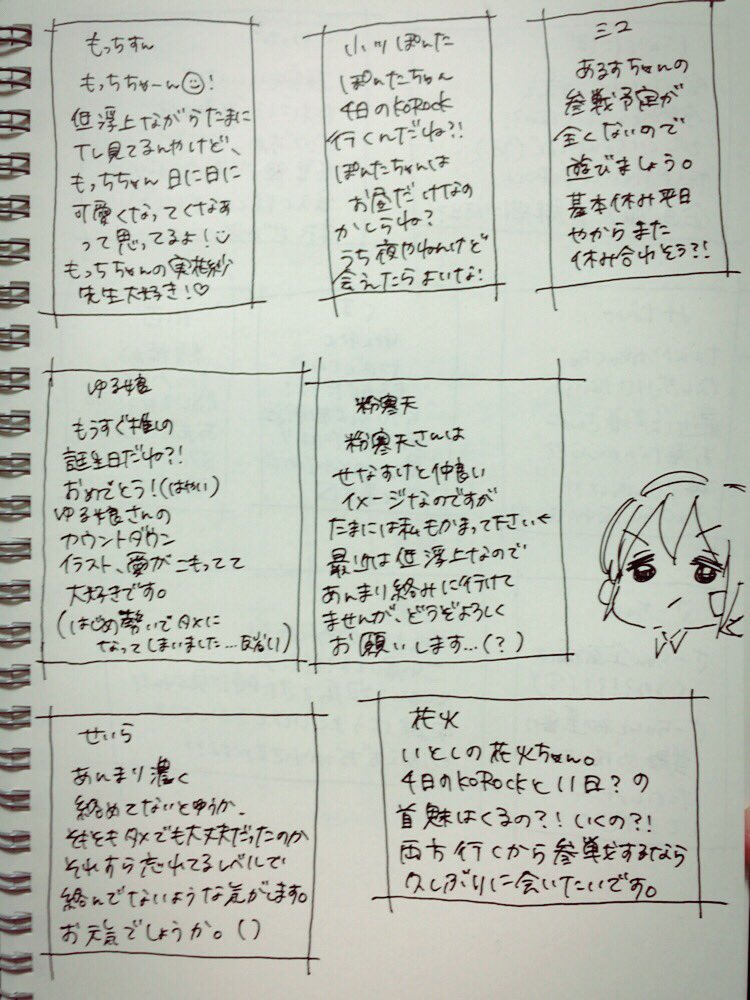 もっちすん
もっちちゃーん☺!
低浮上ながらたまに
TL見てるんやけど、
もっちちゃん日に日に
可愛くなってくなぁ
って思ってるよ!
もっちちゃんの実花紗
先生大好き!♡
小リぽんた
ぽんたちゃん
4日のKoRock
行くんだね?!
ぽんたちゃんは
お昼だけなの
かしらね?
うち夜やねんけど
会えたらよいな!
ミユ
あるすちゃんの
参戦予定が
全くないので
遊びましょう。
基本休み平日
やからまた
休み合わそう?!
ゆる娘
もうすぐ推しの
誕生日だね?!
おめでとう!(はやい)
ゆる娘さんの
カウントダウン
イラスト、愛がこもってて
大好きです。
(はじめ勢いでタメに
なってしまいました…反省し)
粉寒天
粉寒天さんは
せなすけと仲良い
イメージなのですが
たまには私もかまって下さい←
最近は低浮上なので
あんまり絡みに行けて
ませんが、どうぞよろしく
お願いします…(?)
せいら
あんまり濃く
絡めてないとゆうか、
そもそもタメでも大丈夫だったのか
それすら忘れてるレベルで
絡んでないような気がします。
お元気でしょうか。()
花火
いとしの花火ちゃん。
4日のKoRockと11日?の
首魅はくるの?!いくの?!
両方行くから参戦するなら
久しぶりに会いたいです。